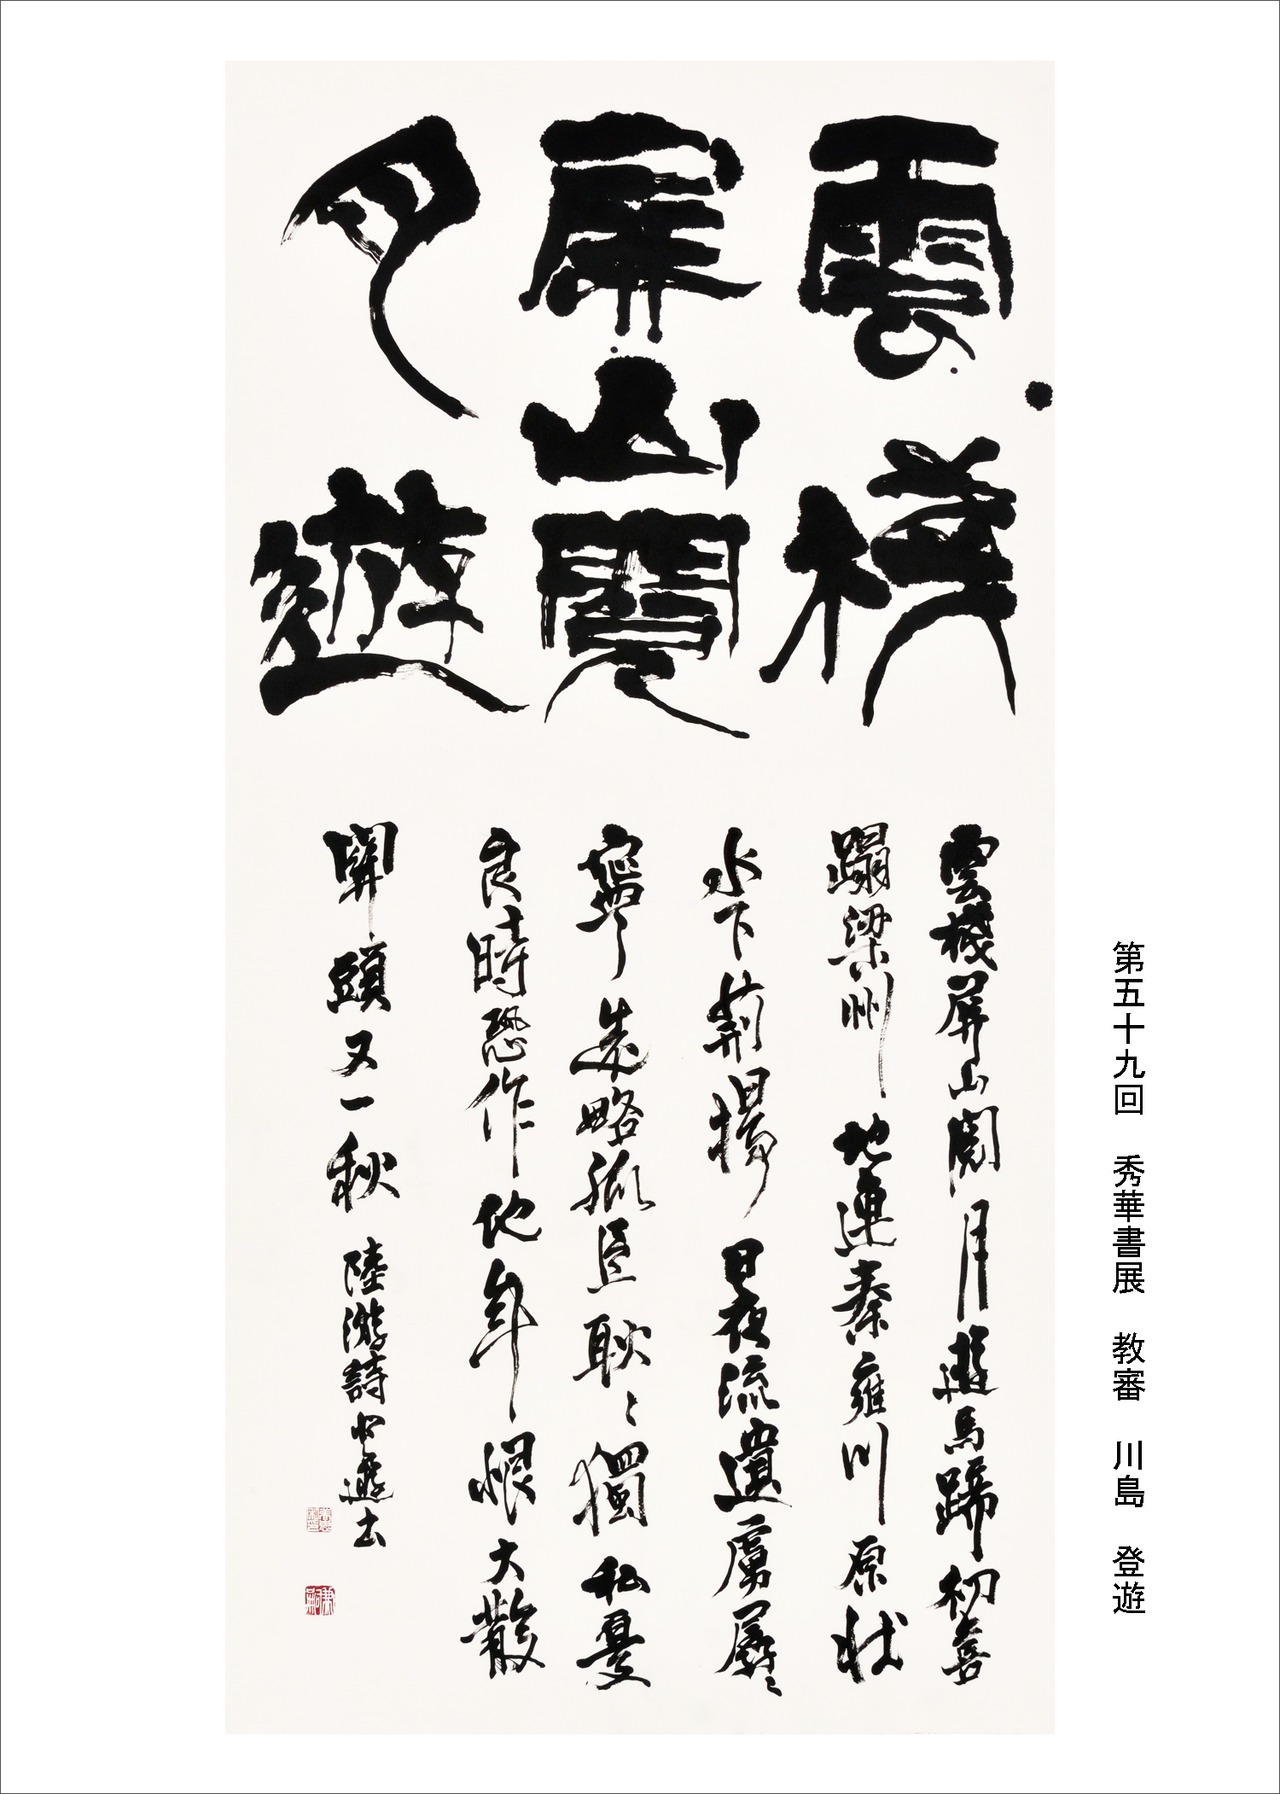 雲棧
屏山閱
月遊
雲棧屏山閱月遊馬蹄初喜
蹋梁州地連秦雍川原壯
水下荊揚日夜流遺虜孱々
寧遠略孤臣耿々獨私憂
良時恐作他年恨大散
關頭又一秋 陸游詩 登遊書
第五十九回 秀華書展 教審 川島 登遊